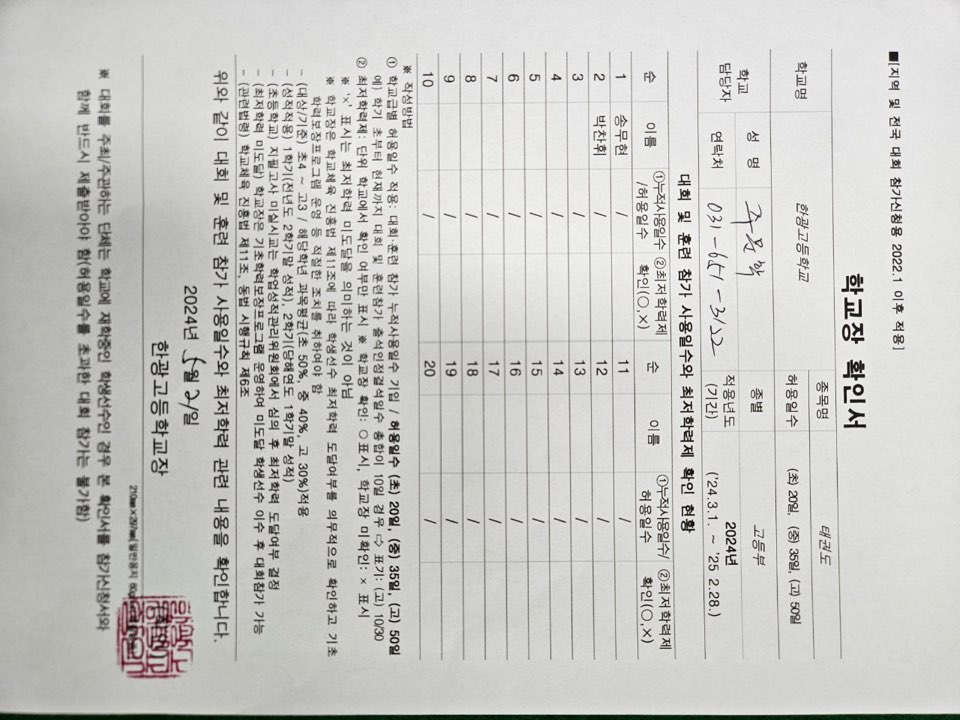 ■[지역 및 전국 대회 참가신청용 2022.1 이후 적용]
학교장 확인서
학교명 한광고등학교 종목명 태권도
허용일수 (초) 20일, (중) 35일, (고) 50일
학교 담당자 성 명 종별 고등부
연락처 031-651-3122 적용년도 (기간) 2024년 ('24.3.1. ~ '25 2.28.)
대회 및 훈련 참가 사용일수와 최저학력제 확인 현황
순 이름 ①누적사용일수/허용일수 ②최저학력제 확인(○,×) 순 이름 ①누적사용일수/허용일수 ②최저학력제 확인(○,×)
1 송무현 / 11 /
2 박찬휘 / 12 /
3 / 13 /
4 / 14 /
5 / 15 /
6 / 16 /
7 / 17 /
8 / 18 /
9 / 19 /
10 / 20 /
※ 작성방법
① 학교급별 허용일수 적용: 대회·훈련 참가 누적사용일수 기입 / 허용일수 (초) 20일, (중) 35일, (고) 50일
예) 학기 초부터 현재까지 대회 및 훈련참가 출석인정결석일수 총합이 10일 경우 ⇨ 표기: (고) 10/30
② 최저학력제: 단위 학교에서 확인 여부만 표시 ※ 학교장 확인: ○표시, 학교장 미확인: × 표시
※ '×' 표시는 최저학력 미도달을 의미하는 것이 아님
※ 학교장은 학교체육 진흥법 제11조에 따라 학생선수 최저학력 도달여부를 의무적으로 확인하고 기초
학력보장프로그램 운영 등 적절한 조치를 취하여야 함
- (대상/기준) 초4 ~ 고3 / 해당학년 과목평균(초 50%, 중 40%, 고 30%)적용
- (성적적용) 1학기(전년도 2학기말 성적), 2학기(당해연도 1학기말 성적)
- (초등학교) 지필고사 미실시교는 학업성적관리위원회에서 심의 후 최저학력 도달여부 결정
- (최저학력 미도달) 학교장은 기초학력보장프로그램 운영하여 미도달 학생선수 이수 후 대회참가 가능
- (관련법령) 학교체육 진흥법 제11조, 동법 시행규칙 제6조
위와 같이 대회 및 훈련 참가 사용일수와 최저학력 관련 내용을 확인합니다.
2024년 5월 21일
한광고등학교장
210㎜×297㎜[일반용지
※ 대회를 주최/주관하는 단체는 학교에 재학중인 학생선수인 경우 본 확인서를 참가신청서와
함께 반드시 제출받아야 함(허용일수를 초과한 대회 참가는 불가함)